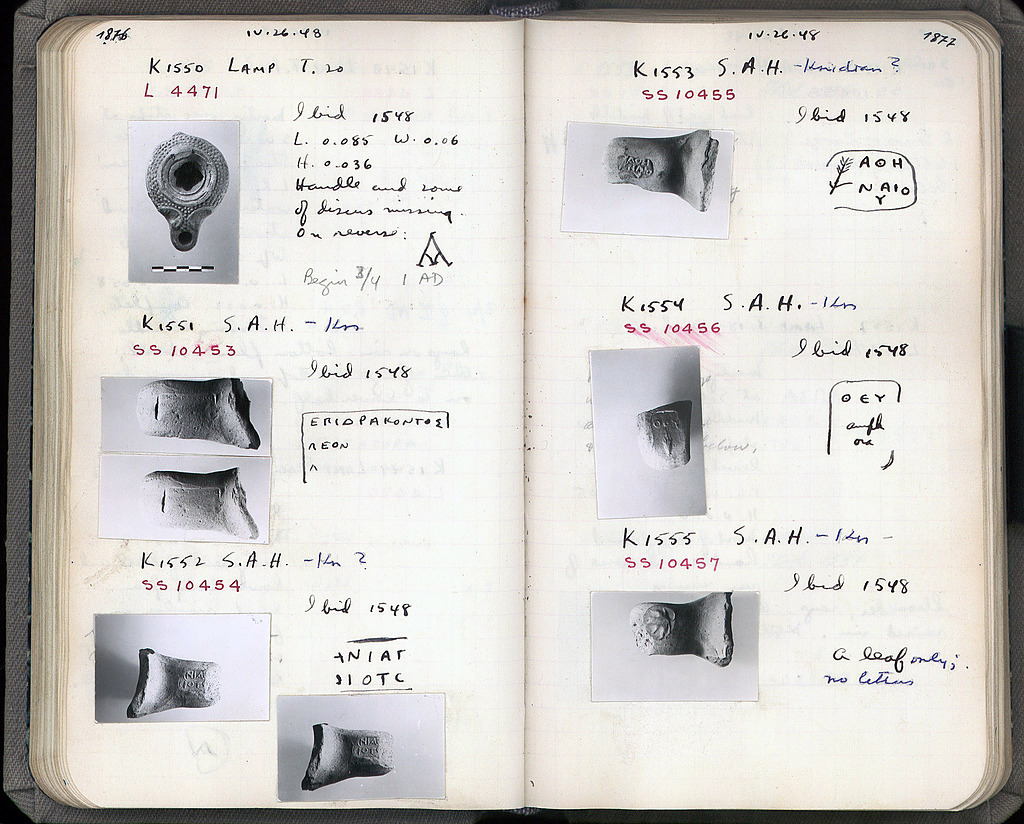 1876
IV.26.48
K1550 LAMP T. 20
L 4471
Ibid 1548
L. 0.085 W. 0.06
H. 0.036
Handle and some
of discus missing.
On reverse:
Begin 3/4 1 AD
K1551 S.A.H. - Kn
SS 10453
Ibid 1548
ΕΠΙΔΡΑΚΟΝΤΟΣ
ΛΕΟΝ
Λ
K1552 S.A.H. - Kn ?
SS 10454
Ibid 1548
ΝΙΑΤ
ΙΟΤC
IV.26.48
1877
K1553 S.A.H. - Knidian ?
SS 10455
Ibid 1548
ΑΘΗ
ΝΑΙΟ
Υ
K1554 S.A.H. - Kn
SS 10456
Ibid 1548
ΘΕΥ
amph
ora
K1555 S.A.H. - Kn -
SS 10457
Ibid 1548
a leaf only;
no letters